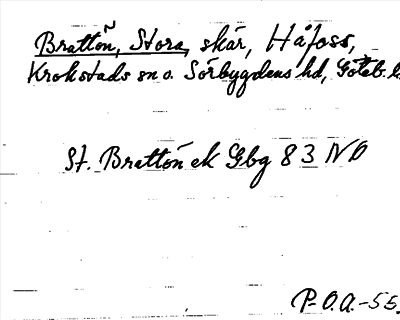 Brattön, Stora, skär, Håfoss,
Krokstads sn o. Sörbygdens hd, Göteb. l.
St. Brattön ek Gbg 83 NO
P-O.A.-55.